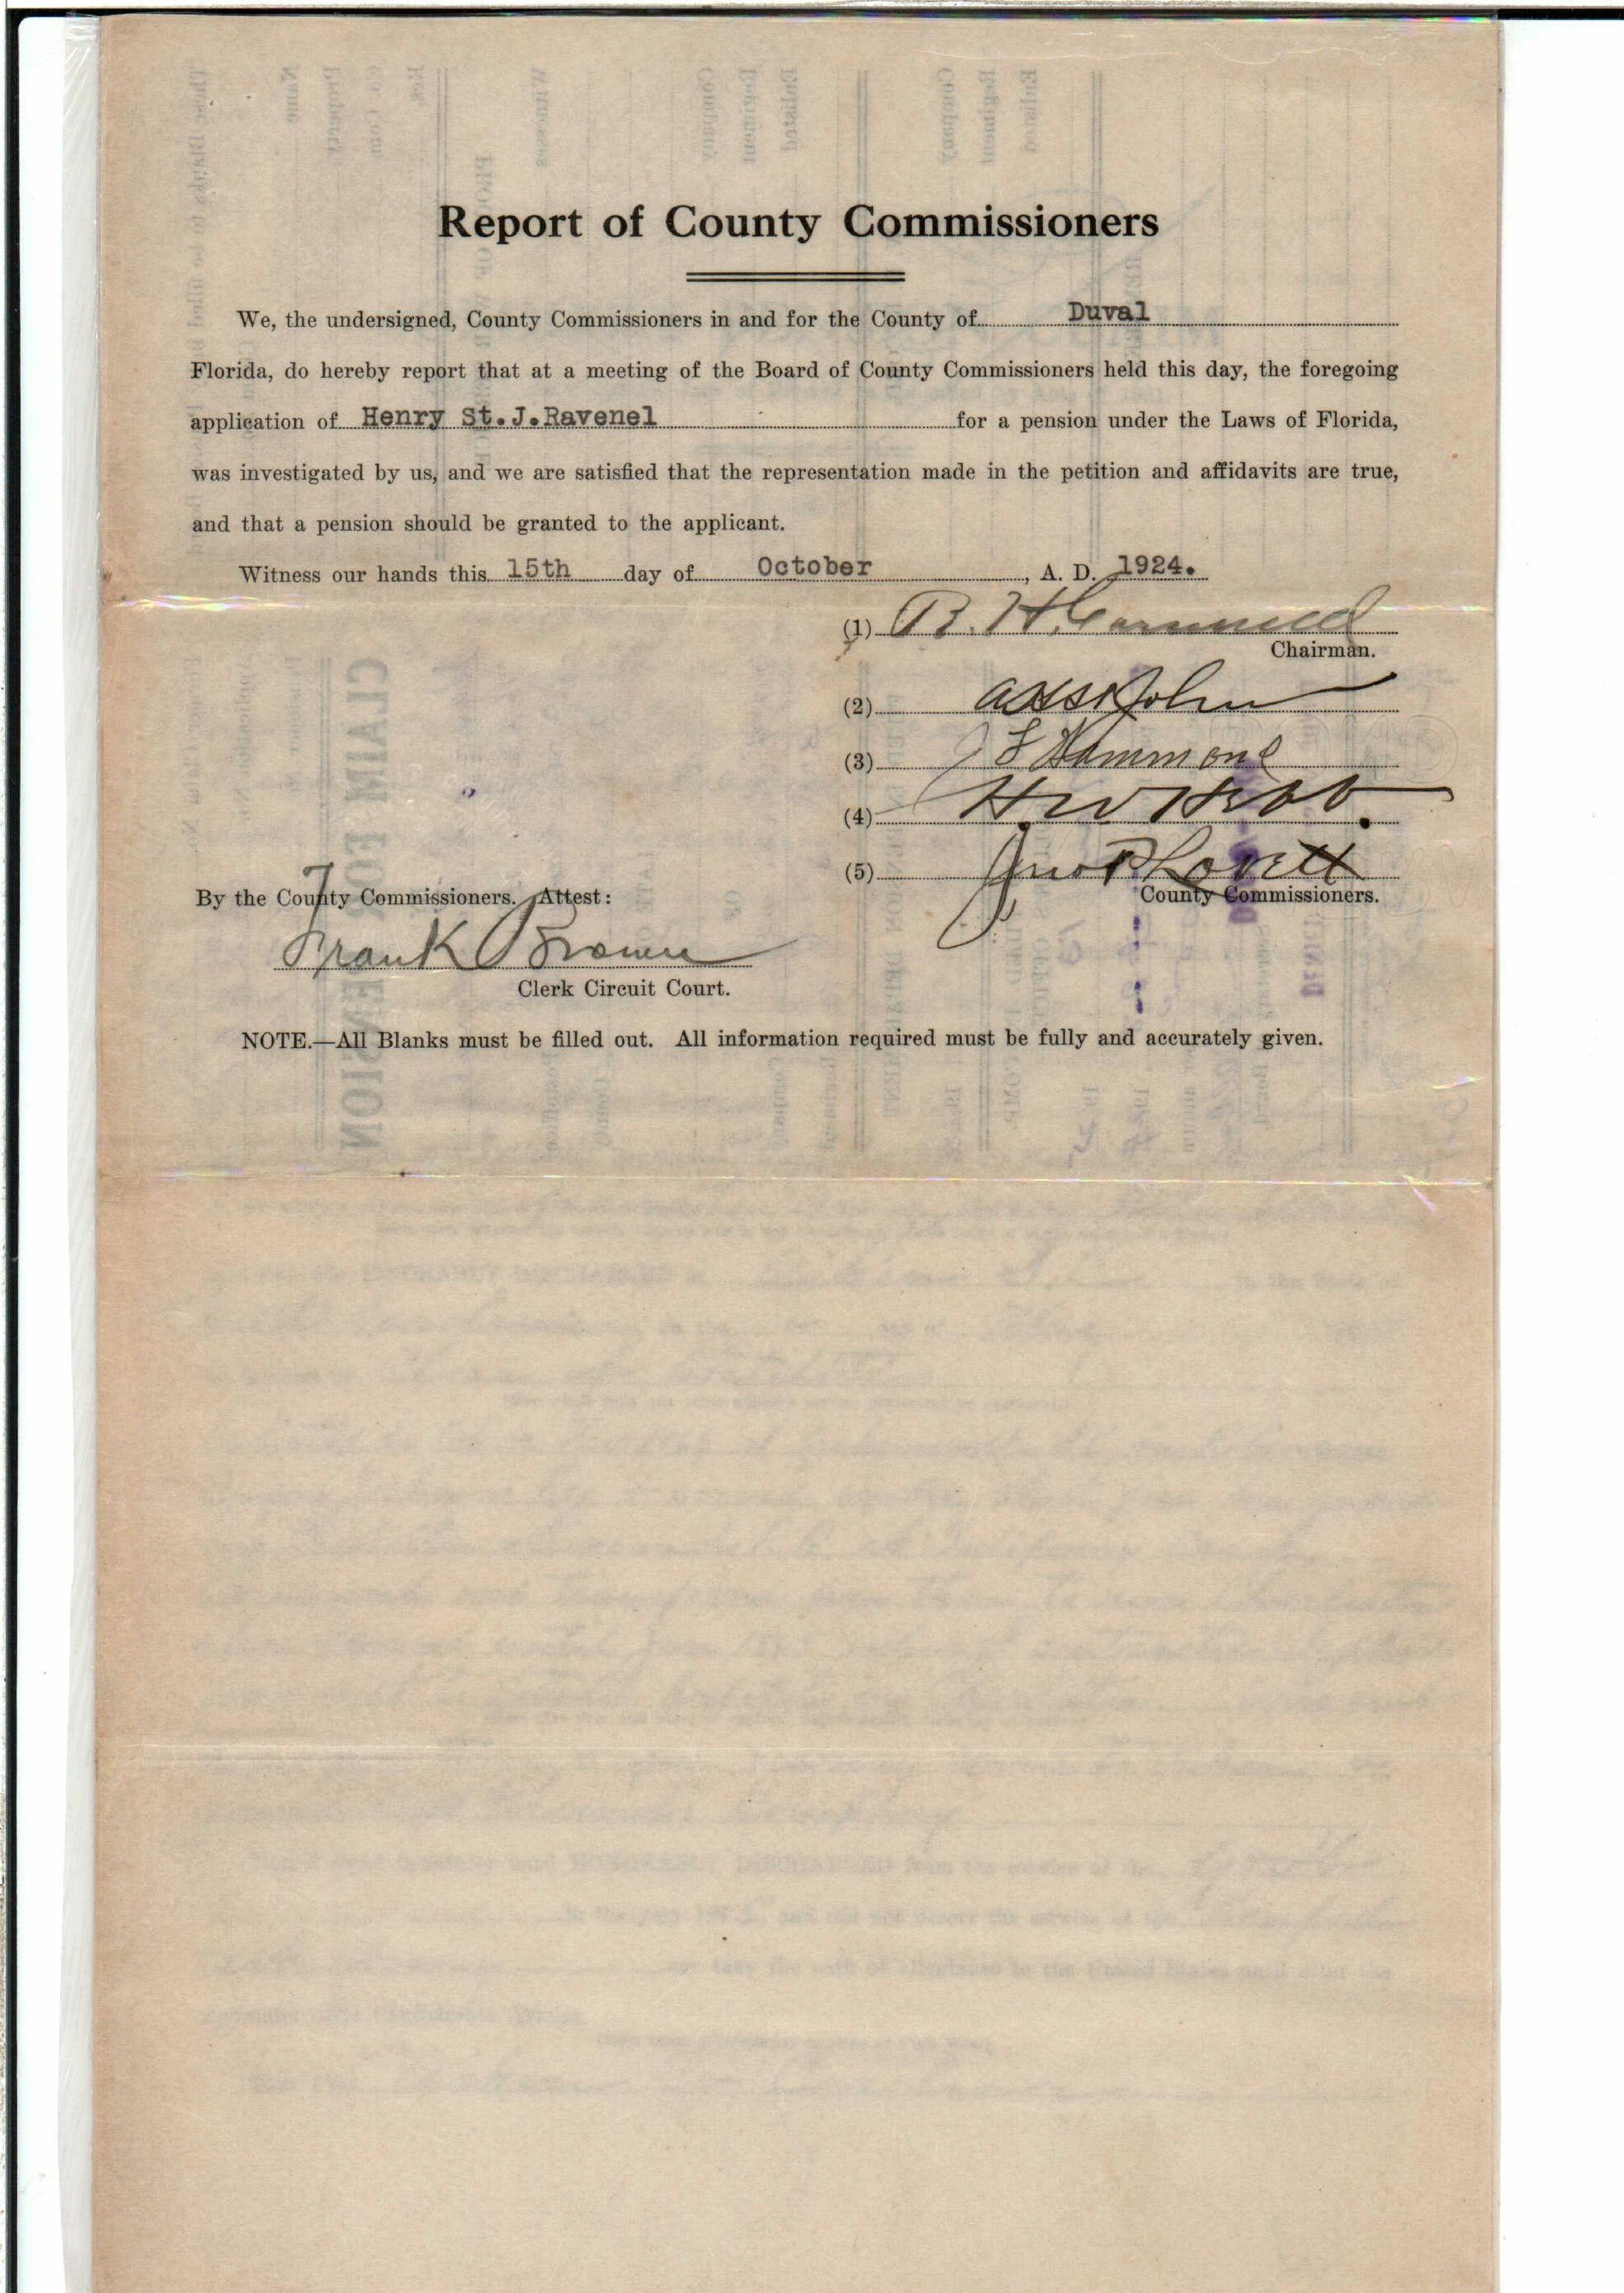 Report of County Commissioners
We, the undersigned, County Commissioners in and for the County of Duval
Florida, do hereby report that at a meeting of the Board of County Commissioners held this day, the foregoing
application of Henry St.J.Ravenel for a pension under the Laws of Florida,
was investigated by us, and we are satisfied that the representation made in the petition and affidavits are true,
and that a pension should be granted to the applicant.
Witness our hands this 15th day of October, A. D. 1924.
(1) R. H.
Chairman.
(2)
(3) J F Hammond
(4) H W Hebb.
(5) Jno R Lovett
County Commissioners.
By the County Commissioners. Attest:
Frank Brown
Clerk Circuit Court.
NOTE.—All Blanks must be filled out. All information required must be fully and accurately given.